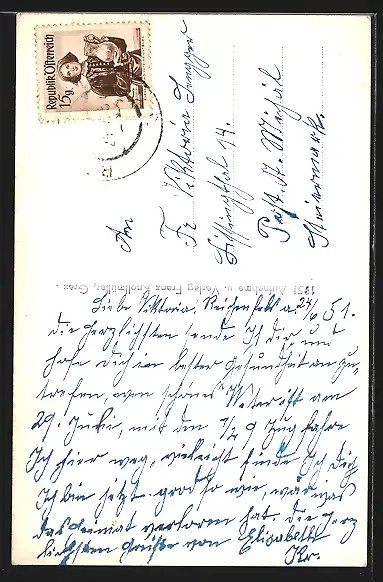 Republik Österreich
15g
An
Fr. Viktoria
14.
Post. St.
Steiermark.
1951 Aufnahme u. Verlag Franz Knollmüller, Graz
Liebe Viktoria! 24/6 51.
die herzlichsten sende Ich dir, und
hoffe dich in bester Gesundheit an zu
treffen, wen schönes Wetter ist am
29. Juli, mit den 1/2 9 Zug fahre
Ich hier weg, vielleicht finde Ich dich,
Ich bin jetzt grad so wie, wär was
das Heimat verloren hat. die herz
lichsten Grüße von Elisabeth